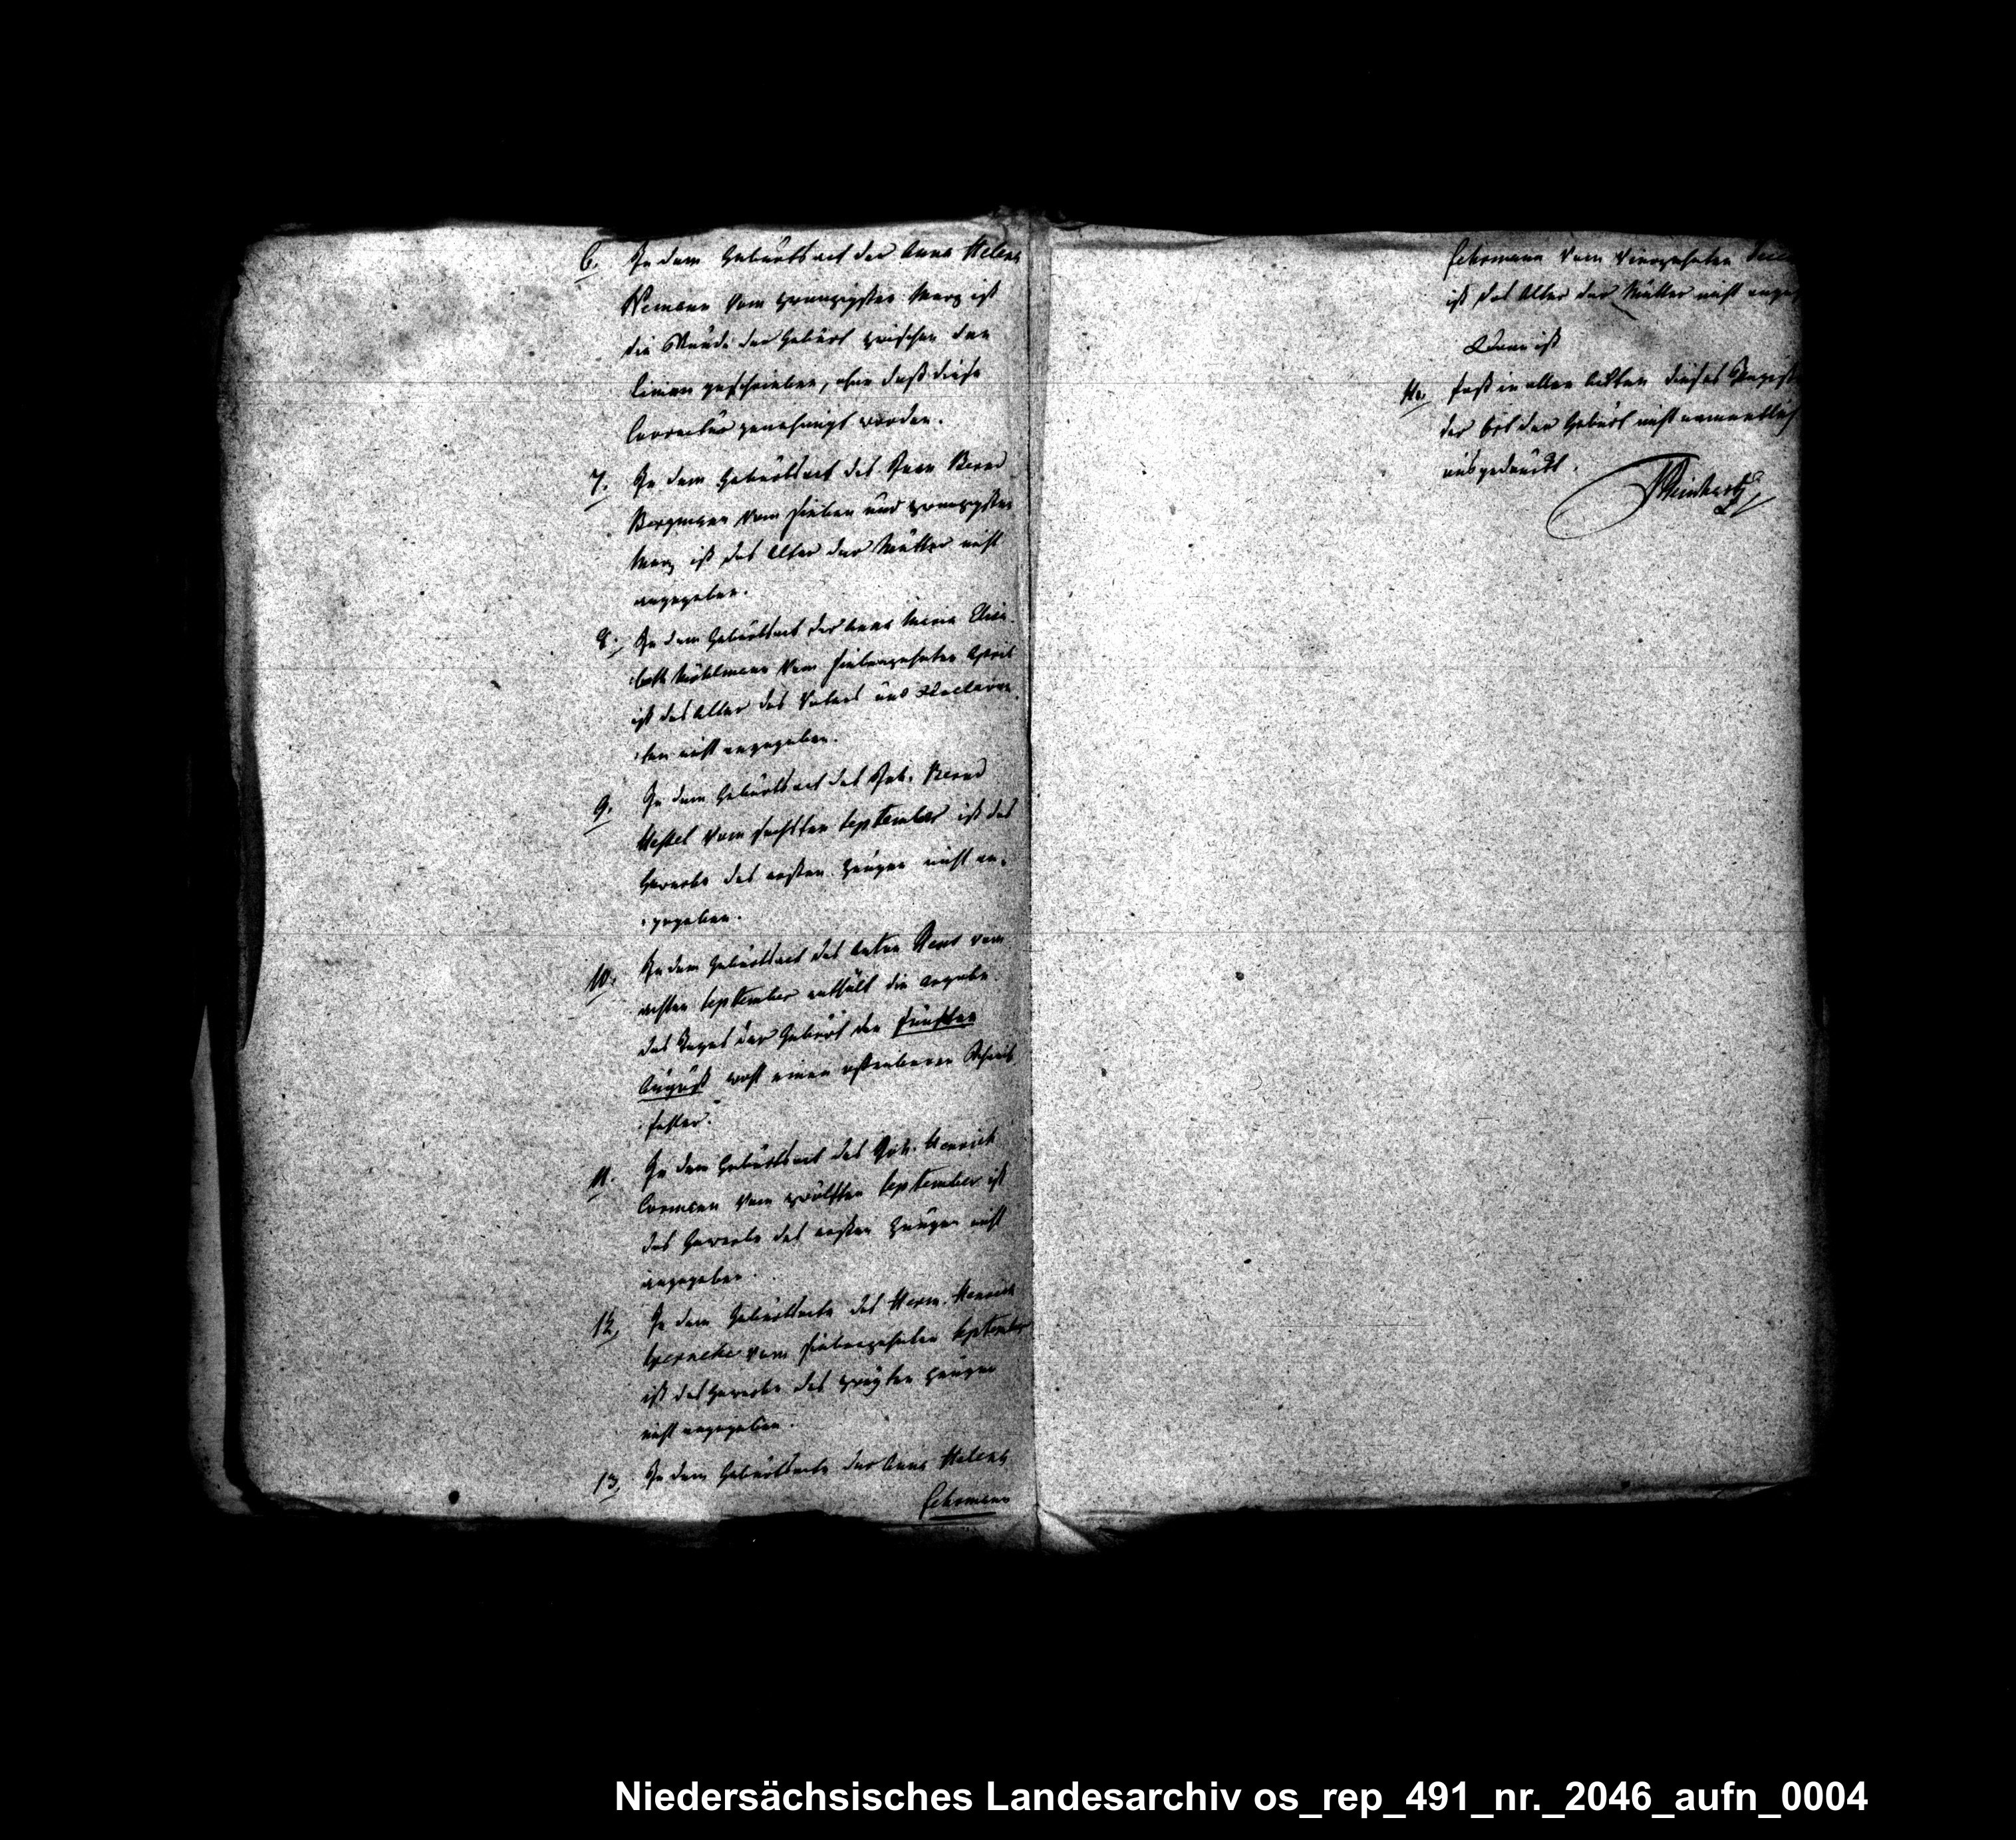 6. In dem Geburtsact der Anna Helena
Nemann vom zwanzigsten März ist
die Stunde der Geburt zwischen den
Linien geschrieben, ohne daß diese
Correctur genehmigt worden.
7. In dem Geburtsact des Joan Bernd
Bergmann vom sieben und zwanzigsten
März ist das Alter der Mutter nicht
angegeben.
8. In dem Geburtsact der Anna Maria Elisa-
beth Möhlmann vom siebenzehnten April
ist das Alter des Vaters und Declaran-
ten nicht angegeben.
9. In dem Geburtsact des Joh. Bernd
vom sechsten September ist das
Gewerbe des ersten Zeugen nicht an-
gegeben.
10. In dem Geburtsact des Anton vom
achten September enthält die Angabe
des Tages der Geburt den fünften
August wohl einen offenbaren Schreib-
fehler.
11. In dem Geburtsact des Joh. Henrich
Cormann vom zwölften September ist
das Gewerbe des ersten Zeugen nicht
angegeben.
12. In dem Geburtsacte des Herm. Henrich
vom siebenzehnten September
ist das Gewerbe des zweyten Zeugen
nicht angegeben.
13. In dem Geburtsacte der Anna Helena
Fehrmann
Fehrmann vom vierzehnten
ist das Alter der Mutter nicht
Dann ist
fast in allen Acten dieses
der Ort der Geburt nicht namentlich
ausgedrückt.
Niedersächsisches Landesarchiv os_rep_491_nr._2046_aufn_0004